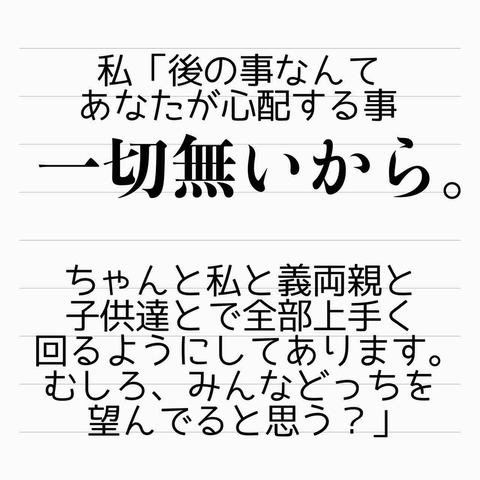 私「後の事なんて
あなたが心配する事
一切無いから。
ちゃんと私と義両親と
子供達とで全部上手く
回るようにしてあります。
むしろ、みんなどっちを
望んでると思う？」